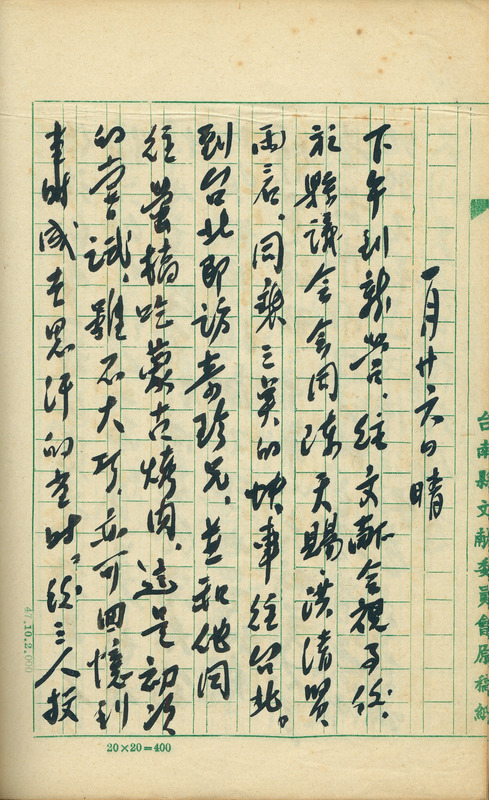 台南縣文獻委員會原稿紙
一月廿六日晴
下午到新營、經文獻會視事後、
於縣議會會同陳天賜、洪清賢、
雨辰、同乘三美的快車往台北。
到台北即訪壽珍兄、並和他同
往螢橋吃蒙古烤肉、這是初次
的嘗試、雖不大巧、亦可回憶到
車時成吉思汗的當時、後三人投
20×20=400
47.10.2.000